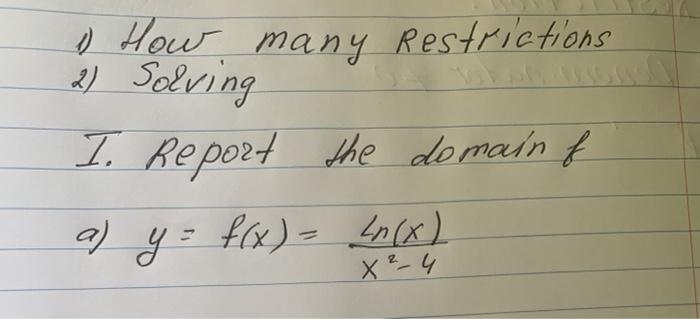 1) How many Restrictions
2) Solving
I. Report the domain f
a) y = f(x) = Ln(x) / x²-4